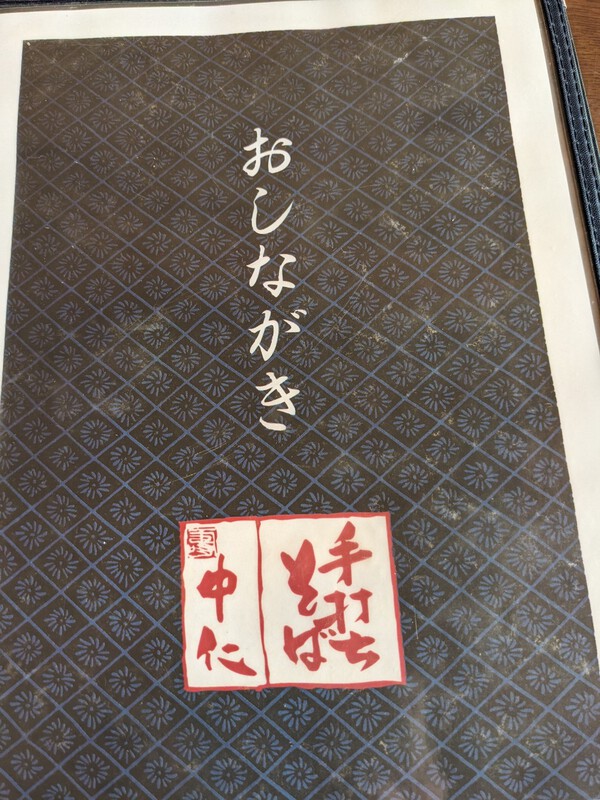 おしながき
手打ち
そば
中仁